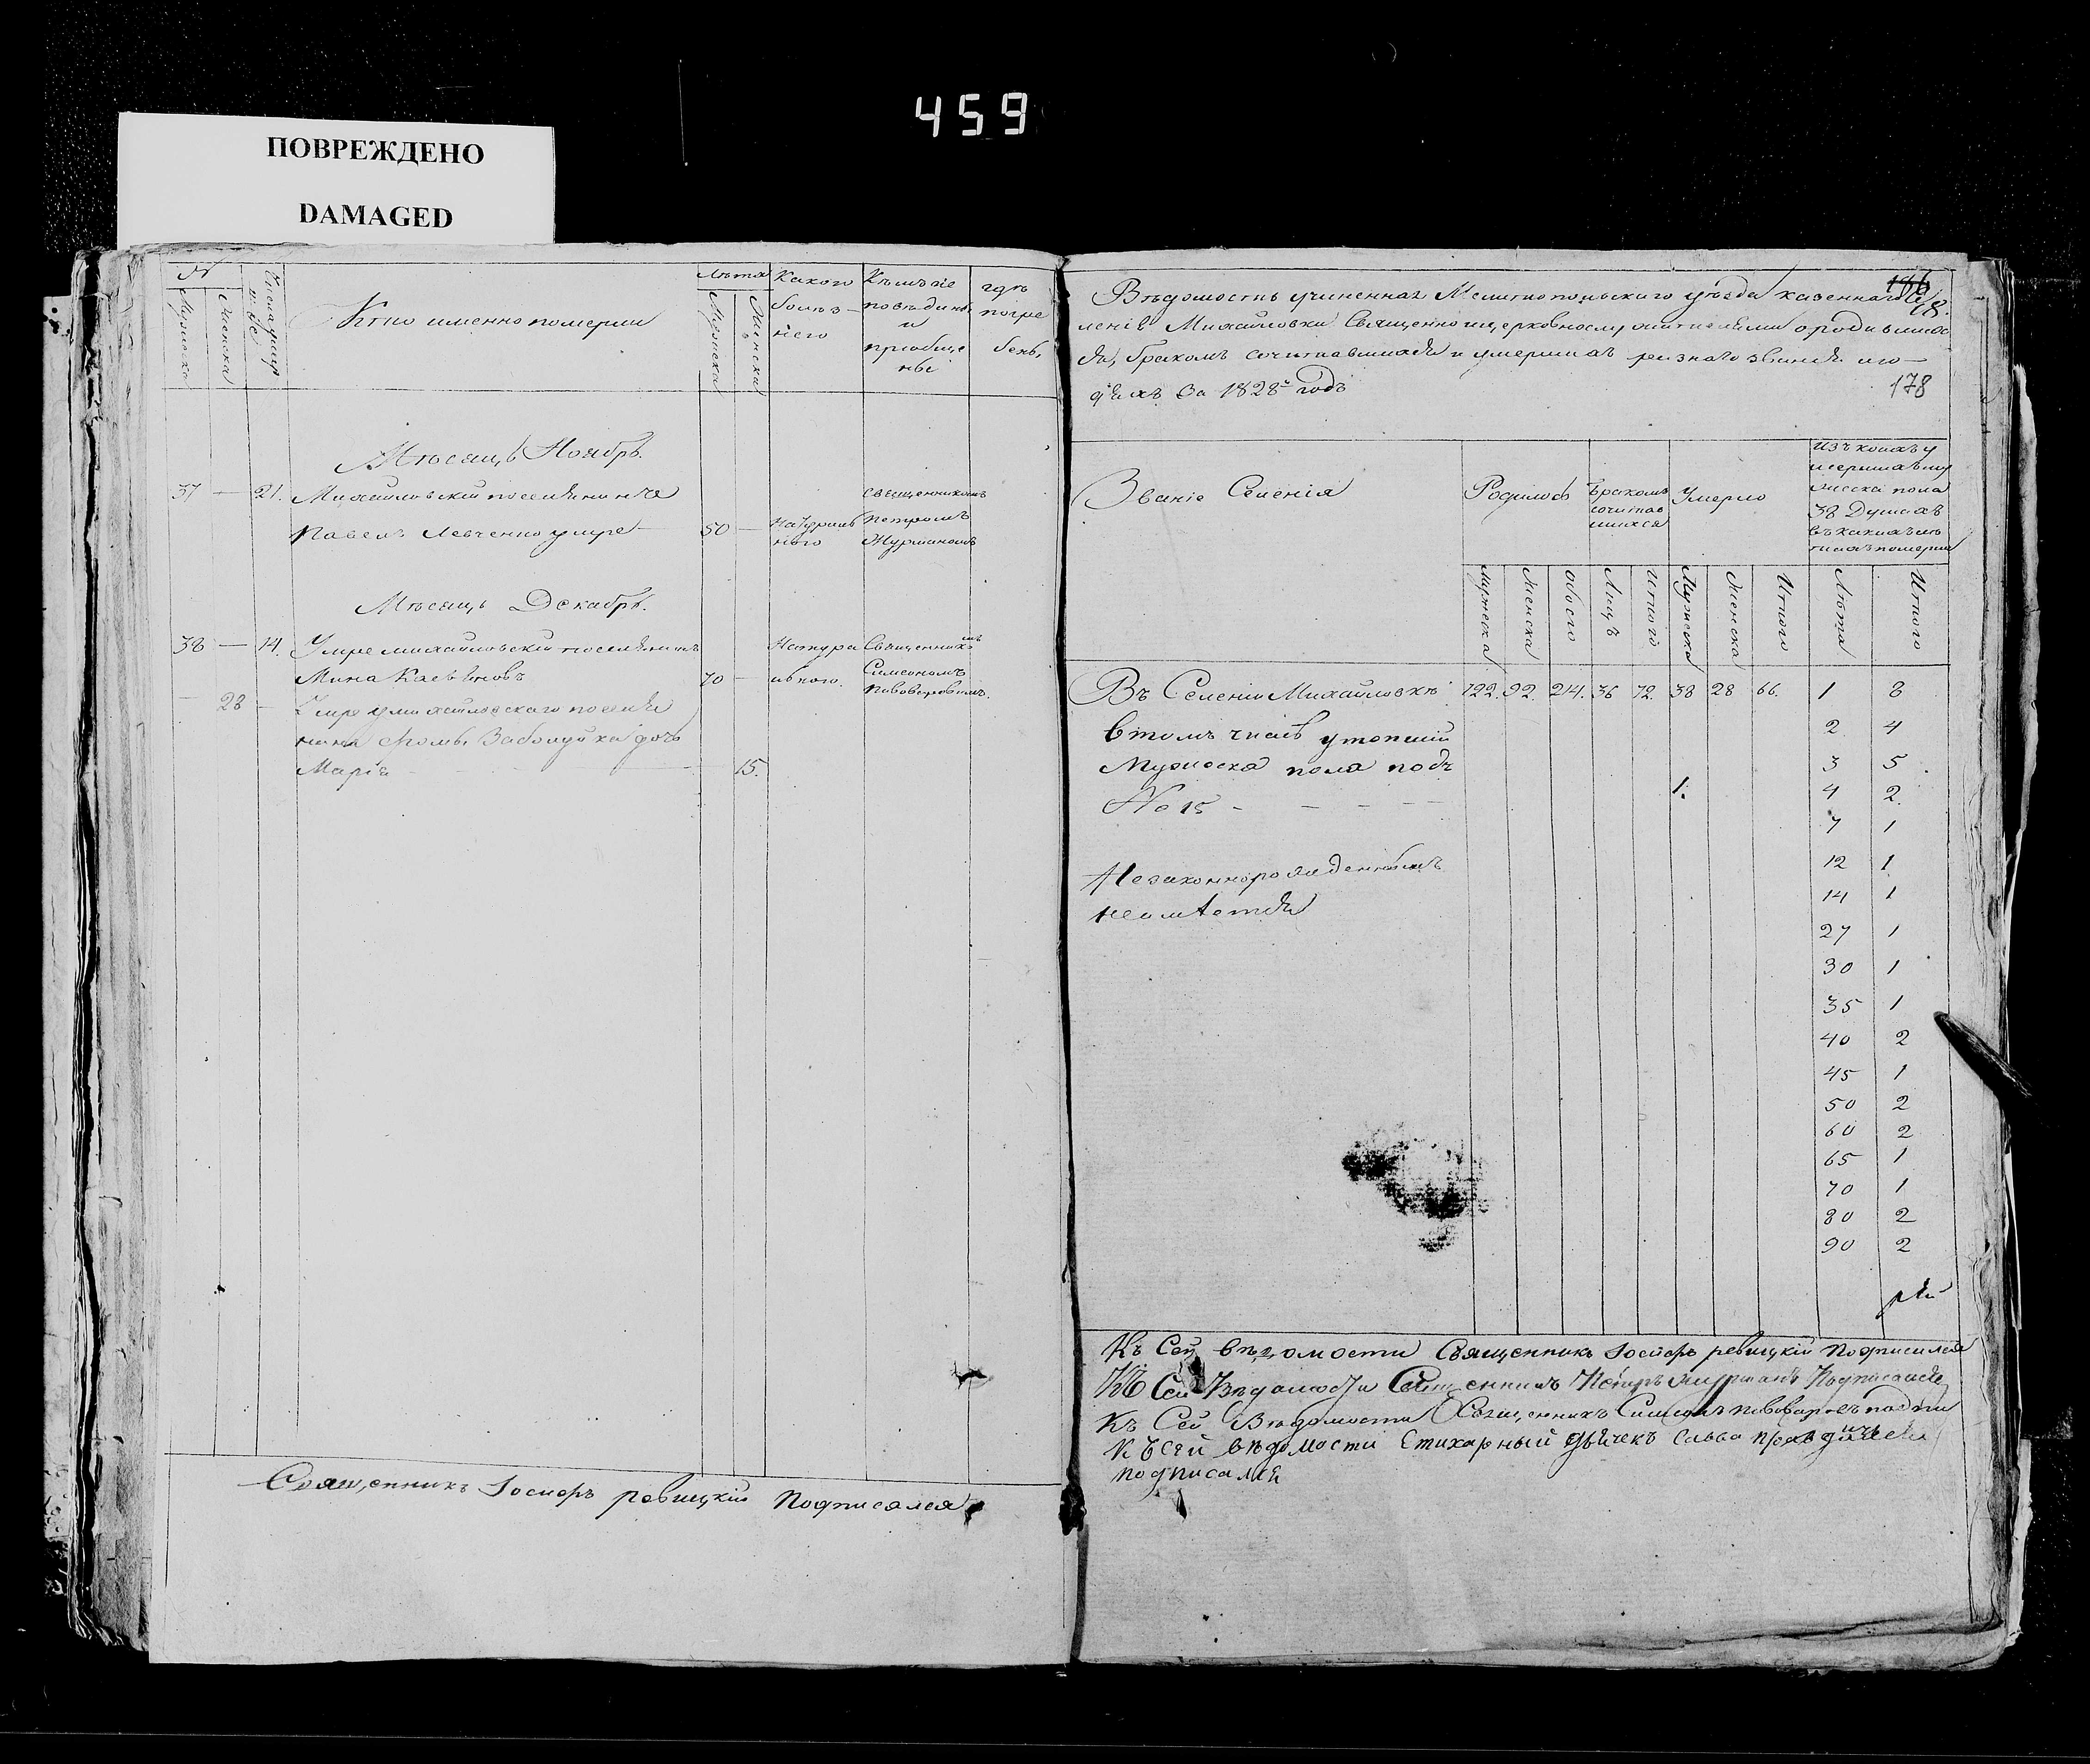 459
ПОВРЕЖДЕНО
DAMAGED
№
Мужеска
Женска
Кто именно померли
Лѣта
Мужеска
Женска
Какого
болѣз-
него
и
приобще
ны
гдѣ
погре
бены
Мѣсяцъ Ноябрь.
37 — 21. Михайловскій поселянинъ
Павелъ Левченко умре 50 —
Натураль
ного
священникомъ
Петромъ
Мѣсяцъ Декабрь.
38 — 14. Умре михайловскій поселянинъ
Мина 70 —
Натура
льного.
Священником
Симеономъ
— 28 — Умре у михайловскаго поселя
нина дочь
Марія — 15.
Священникъ Іосифъ ревицкій Подписался
186
178
Вѣдомость учиненная Мелитопольского уѣзда казеннаго се
ленія Михайловки Священно и церковнослужителями о родившихъ
ся, бракомъ сочитавшихся и умершихъ разнаго званія лю—
дяхъ За 1828й годъ
Званіе Селенія
Родилось
Бракомъ
сочитав
шихся
Умерло
Изъ коихъ у
мершихъ му
жеска пола
38 Душахъ
въ какихъ лѣ
тахъ померли
Мужеска
Женска
Обоего
Лицъ
Итого
Мужеска
Женска
Итого
Лѣта
Итого
Въ Селеніи Михайловкѣ 122. 92. 214. 36 72. 38 28 66. 1 8
втомъ числѣ утопшій 2 4
Мужеска пола подъ 3 5
№ 15 — — — — 1. 4 2.
7 1
Незаконнорожденныхъ 12 1
неимѣется 14 1
27 1
30 1
35 1
40 2
45 1
50 2
60 2
65 1
70 1
80 2
90 2
Къ Сей вѣдомости Священникъ Іосифъ ревицкій Подписался
Къ Сей Вѣдомости Священникъ Петръ Подписался
Къ Сей Вѣдомости Священникъ Симеонъ
Къ Сей вѣдомости Стихарный дьячекъ Савва
подписался